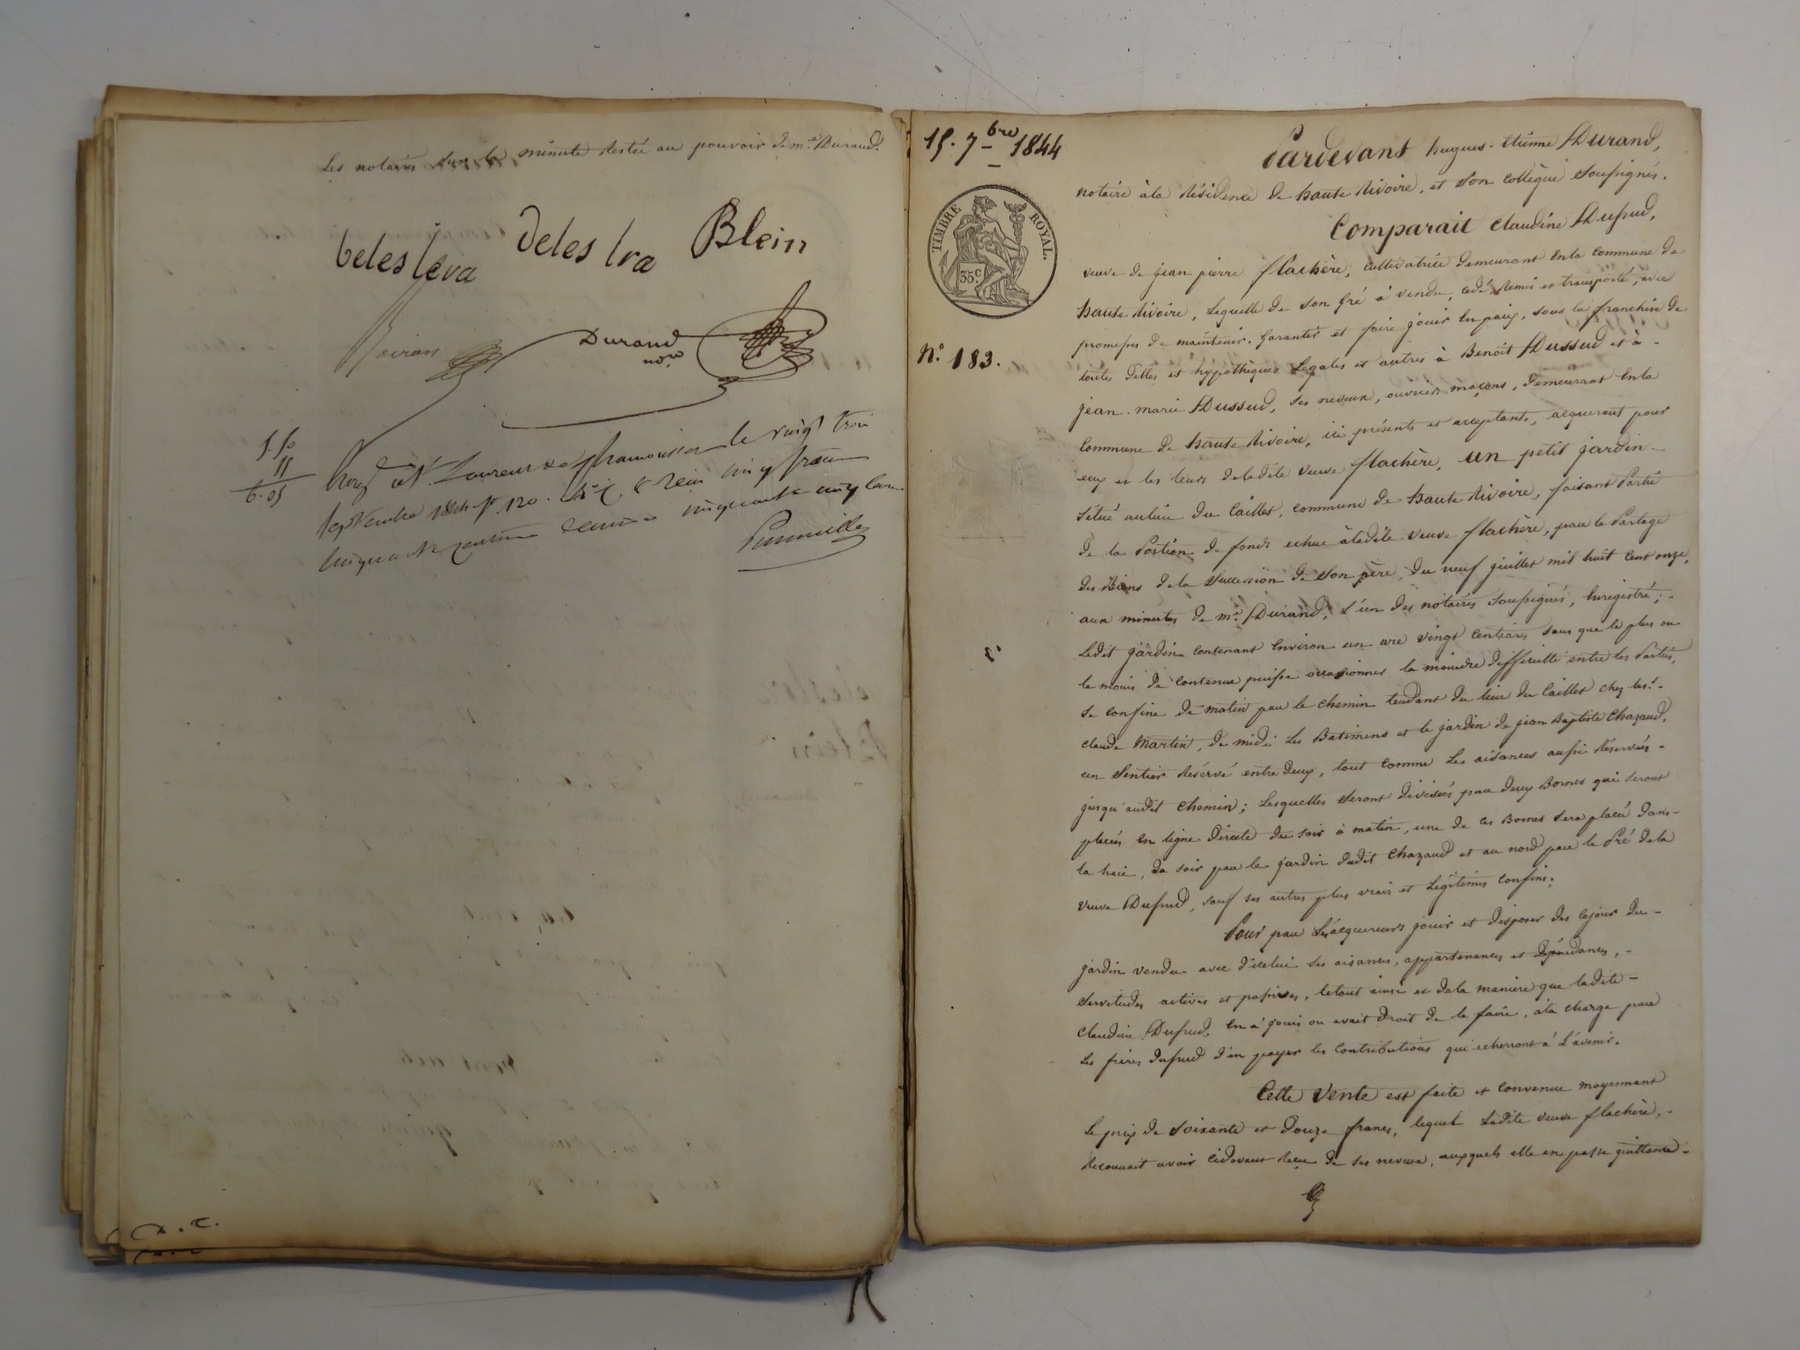 Les notaires sur la minute restée au pouvoir de me. Durand.
Delestra Blein
Durand
nore
5. 50
55
6. 05
le vingt trois
septembre 1844 fo. 120.
cinquante
15. 7bre 1844
TIMBRE ROYAL.
35 c
No. 183.
Pardevant hugues-étienne Durand,
notaire à la résidence de haute rivoire, et son collègue soussignés.
Comparait Claudine Dussud,
veuve de jean pierre flachère, cultivatrice demeurant en la commune de
haute rivoire, Laquelle de son gré a vendu, cédé, remis et transporté, avec
promesses de maintenir, garantir et faire jouir en paix, sous la franchise de
toutes dettes et hypothèques Légales et autres à Benoît Dussud et à -
jean-marie Dussud, ses neveux, ouvriers maçons, demeurant en la
Commune de haute rivoire, ici présents et acceptants, acquerant pour
eux et les leurs de ladite veuve flachère, un petit jardin -
situé au lieu du Caillet, commune de haute rivoire, faisant Partie
de la Portion de fonds echue à ladite veuve flachère, par le Partage
des Biens de la succession de son père, du neuf juillet mil huit cent onze,
aux minutes de me. Durand, L'un des notaires soussignés, Enregistré; -
Ledit jardin contenant Environ un are vingt centiares sans que le plus ou
le moins de contenue puisse occasionner la moindre difficulté entre les Parties,
se confine de matin par le chemin tendant du lieu du Caillet chez
claude Martin, de midi Les Batimens et le jardin de jean Baptiste Chazaud,
un Sentier réservé entre deux, tout comme Les aisances aussi réservées -
jusqu'audit chemin; Lesquelles seront divisées par deux Bornes qui seront
placées en ligne directe du soir à matin, une de ces Bornes sera placée dans -
la haie, du soir par le jardin dudit Chazaud et au nord par le Pré de la
veuve Dussud, sauf ses autres plus vrais et Légitimes confins;
Pour par Les acquereurs jouir et disposer dès cejour du -
jardin vendu avec d'icelui ses aisances, appartenances et dépendances, -
servitudes actives et passives, letout ainsi et de la manière que ladite -
Claudine Dussud, en a joui ou avait droit de le faire, à la charge par
les frères dussud d'en payer les contributions qui echerront à L'avenir.
Cette Vente est faite et convenue moyennant
Le prix de Soixante et douze francs, lequel Ladite veuve flachère, -
reconnait avoir cidevant reçu de ses neveux, auxquels elle en passe quittance -